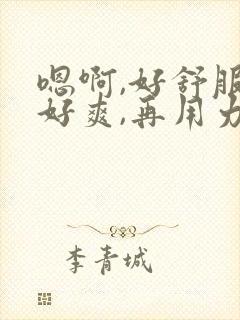 嗯啊,好舒服
好爽,再用力
李青城